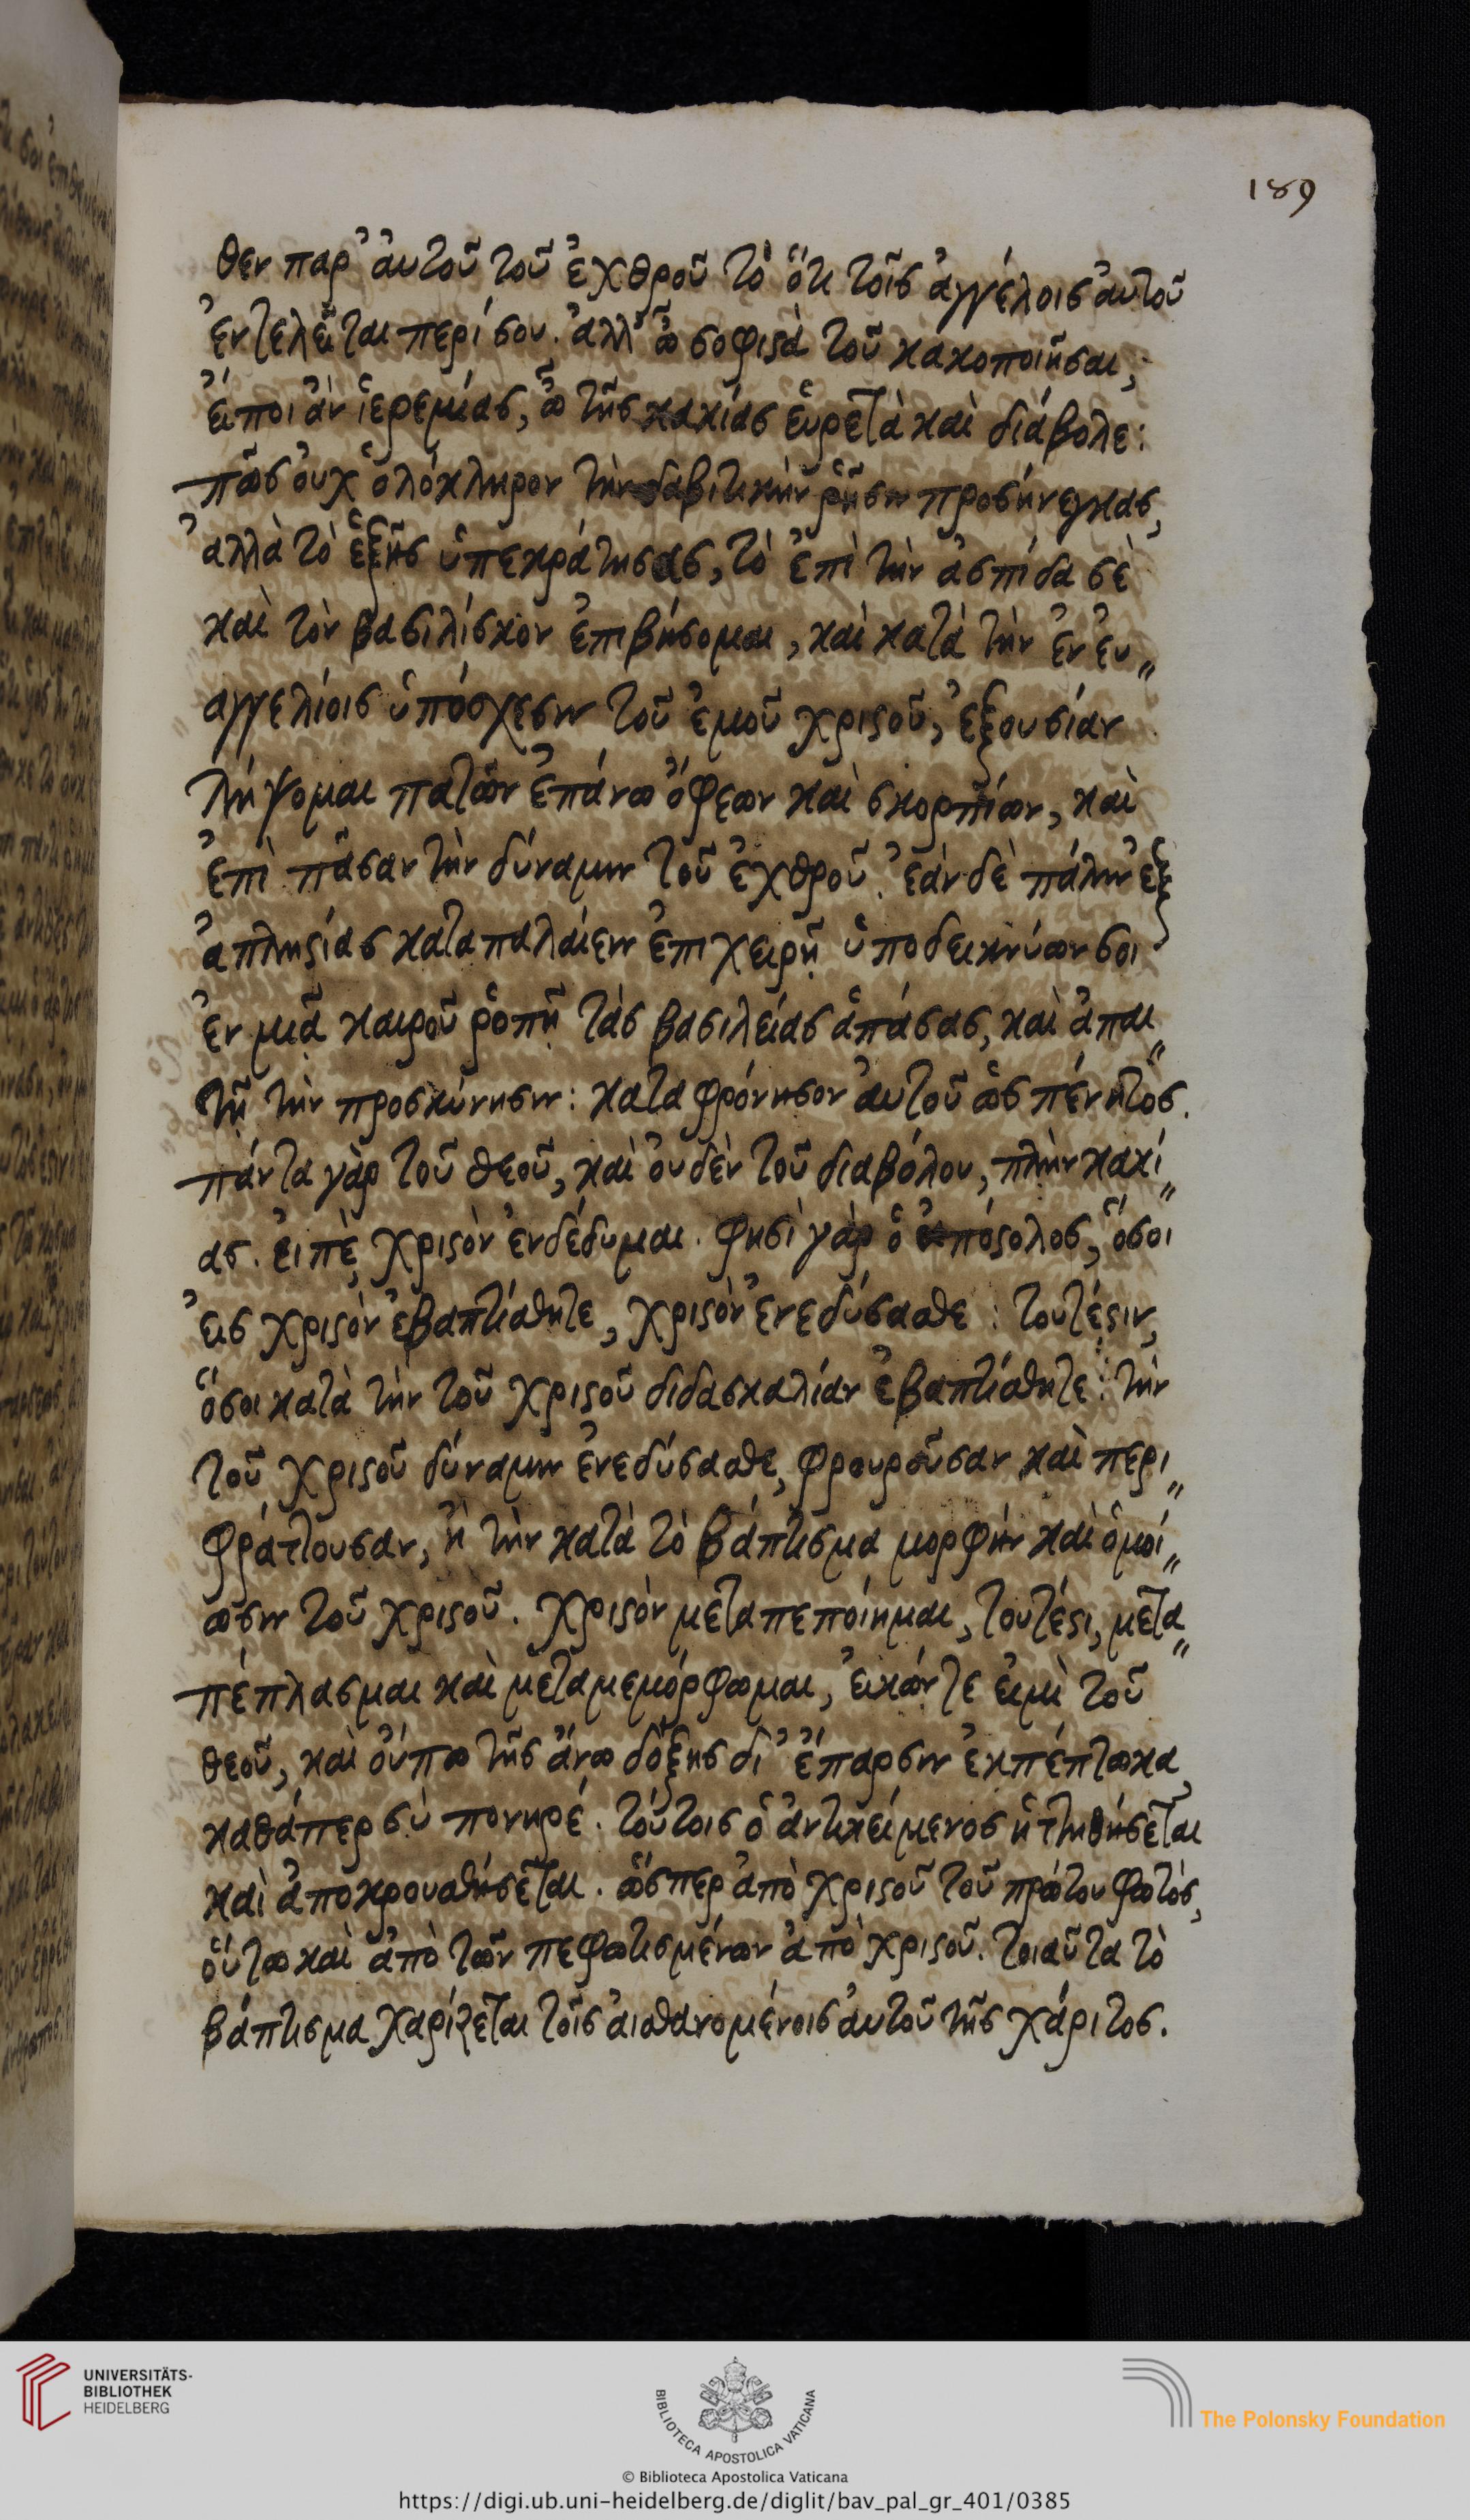 189
θεν παρ' ἀυτοῦ τοῦ ἐχθροῦ τὸ ὅτι τοῖς ἀγγέλοις ἀυτοῦ
ἐντελεῖται περί σου. ἀλλ' ὦ σοφιστὰ τοῦ κακοποιῆσαι,
εἴποι ἂν ἱερεμίας, ὦ τῆς κακίας ἑυρετὰ καὶ διάβολε:
πῶς οὐχ ὁλόκληρον τὴν δαβιτικὴν ῥῆσιν προσήνεγκας,
ἀλλὰ τὸ ἑξῆς ὑπεκράτησας, τὸ ἐπὶ τὴν ἀσπίδα σὲ
καὶ τὸν βασιλίσκον ἐπιβήσομαι, καὶ κατὰ τὴν ἐν ἐυ„
αγγελίοις ὑπόσχεσιν τοῦ ἐμοῦ χριστοῦ, ἐξουσίαν
λήψομαι πατῶν ἐπάνω ὄφεων καὶ σκορπίων, καὶ
ἐπὶ πᾶσαν τὴν δύναμιν τοῦ ἐχθροῦ. ἐὰν δὲ πάλιν ἐξ
ἀπληστίας καταπαλαίειν ἐπιχειρῇ ὑποδεικνύων σοι
ἐν μιᾷ καιροῦ ῥοπῇ τὰς βασιλείας ἁπάσας, καὶ ἀπαι„
τῇ τὴν προσκύνησιν: καταφρόνησον ἀυτοῦ ὡς πένητος.
πάντα γὰρ τοῦ θεοῦ, καὶ ὀυδὲν τοῦ διαβόλου, πλὴν κακί„
ας. εἰπὲ, χριστὸν ἐνδέδυμαι. φησὶ γὰρ ὁ ἀπόστολος, ὅσοι
εἰς χριστὸν ἐβαπτίσθητε, χριστὸν ἐνεδύσασθε: τουτέστιν,
ὅσοι κατὰ τὴν τοῦ χριστοῦ διδασκαλίαν ἐβαπτίσθητε: τὴν
τοῦ χριστοῦ δύναμιν ἐνεδύσασθε, φρουροῦσαν καὶ περι„
φράττουσαν, ἢ τὴν κατὰ τὸ βάπτισμα μορφὴν καὶ ὁμοί„
ωσιν τοῦ χριστοῦ. χριστὸν μεταπεποίημαι, τουτέστι, μετα„
πέπλασμαι καὶ μεταμεμόρφωμαι, εἰκών τε εἰμὶ τοῦ
θεοῦ, καὶ οὔπω τῆς ἄνω δόξης δι' ἔπαρσιν ἐκπέπτωκα,
καθάπερ σὺ πονηρέ. τούτοις ὁ ἀντικείμενος ἡττηθήσεται
καὶ ἀποκρουσθήσεται. ὥσπερ ἀπὸ χριστοῦ τοῦ πρώτου φωτὸς,
οὕτω καὶ ἀπὸ τῶν πεφωτισμένων ἀπὸ χριστοῦ. τοιαῦτα τὸ
βάπτισμα χαρίζεται τοῖς ἀισθανομένοις ἀυτοῦ τῆς χάριτος.
UNIVERSITÄTS-
BIBLIOTHEK
HEIDELBERG
BIBLIOTECA APOSTOLICA VATICANA
The Polonsky Foundation
© Biblioteca Apostolica Vaticana
https://digi.ub.uni-heidelberg.de/diglit/bav_pal_gr_401/0385